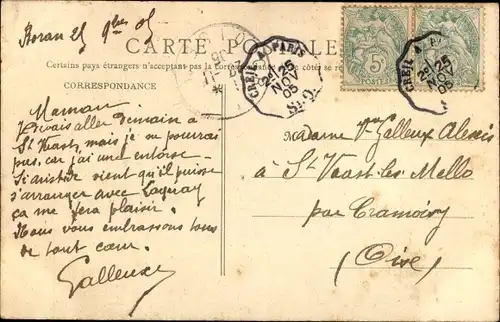 Boran 25 9bre 05
CARTE POSTALE
Certains pays étrangers n'acceptant pas la correspondance
CORRESPONDANCE
Maman
Je vais aller demain à
St Vaast, mais je ne pourrai
pas, car j'ai une entorse.
Si Aristide vient qu'il puisse
s'arranger avec
ça me fera plaisir.
Nous vous embrassons tous
de tout cœur.
Galleux
CREIL À PARIS
2e 25
NOV
05
CREIL À
2e 25
NOV
05
5c
POSTES
Madame Vve Galleux Alexis
à St Vaast-les-Mello
par Cramoisy
(Oise)